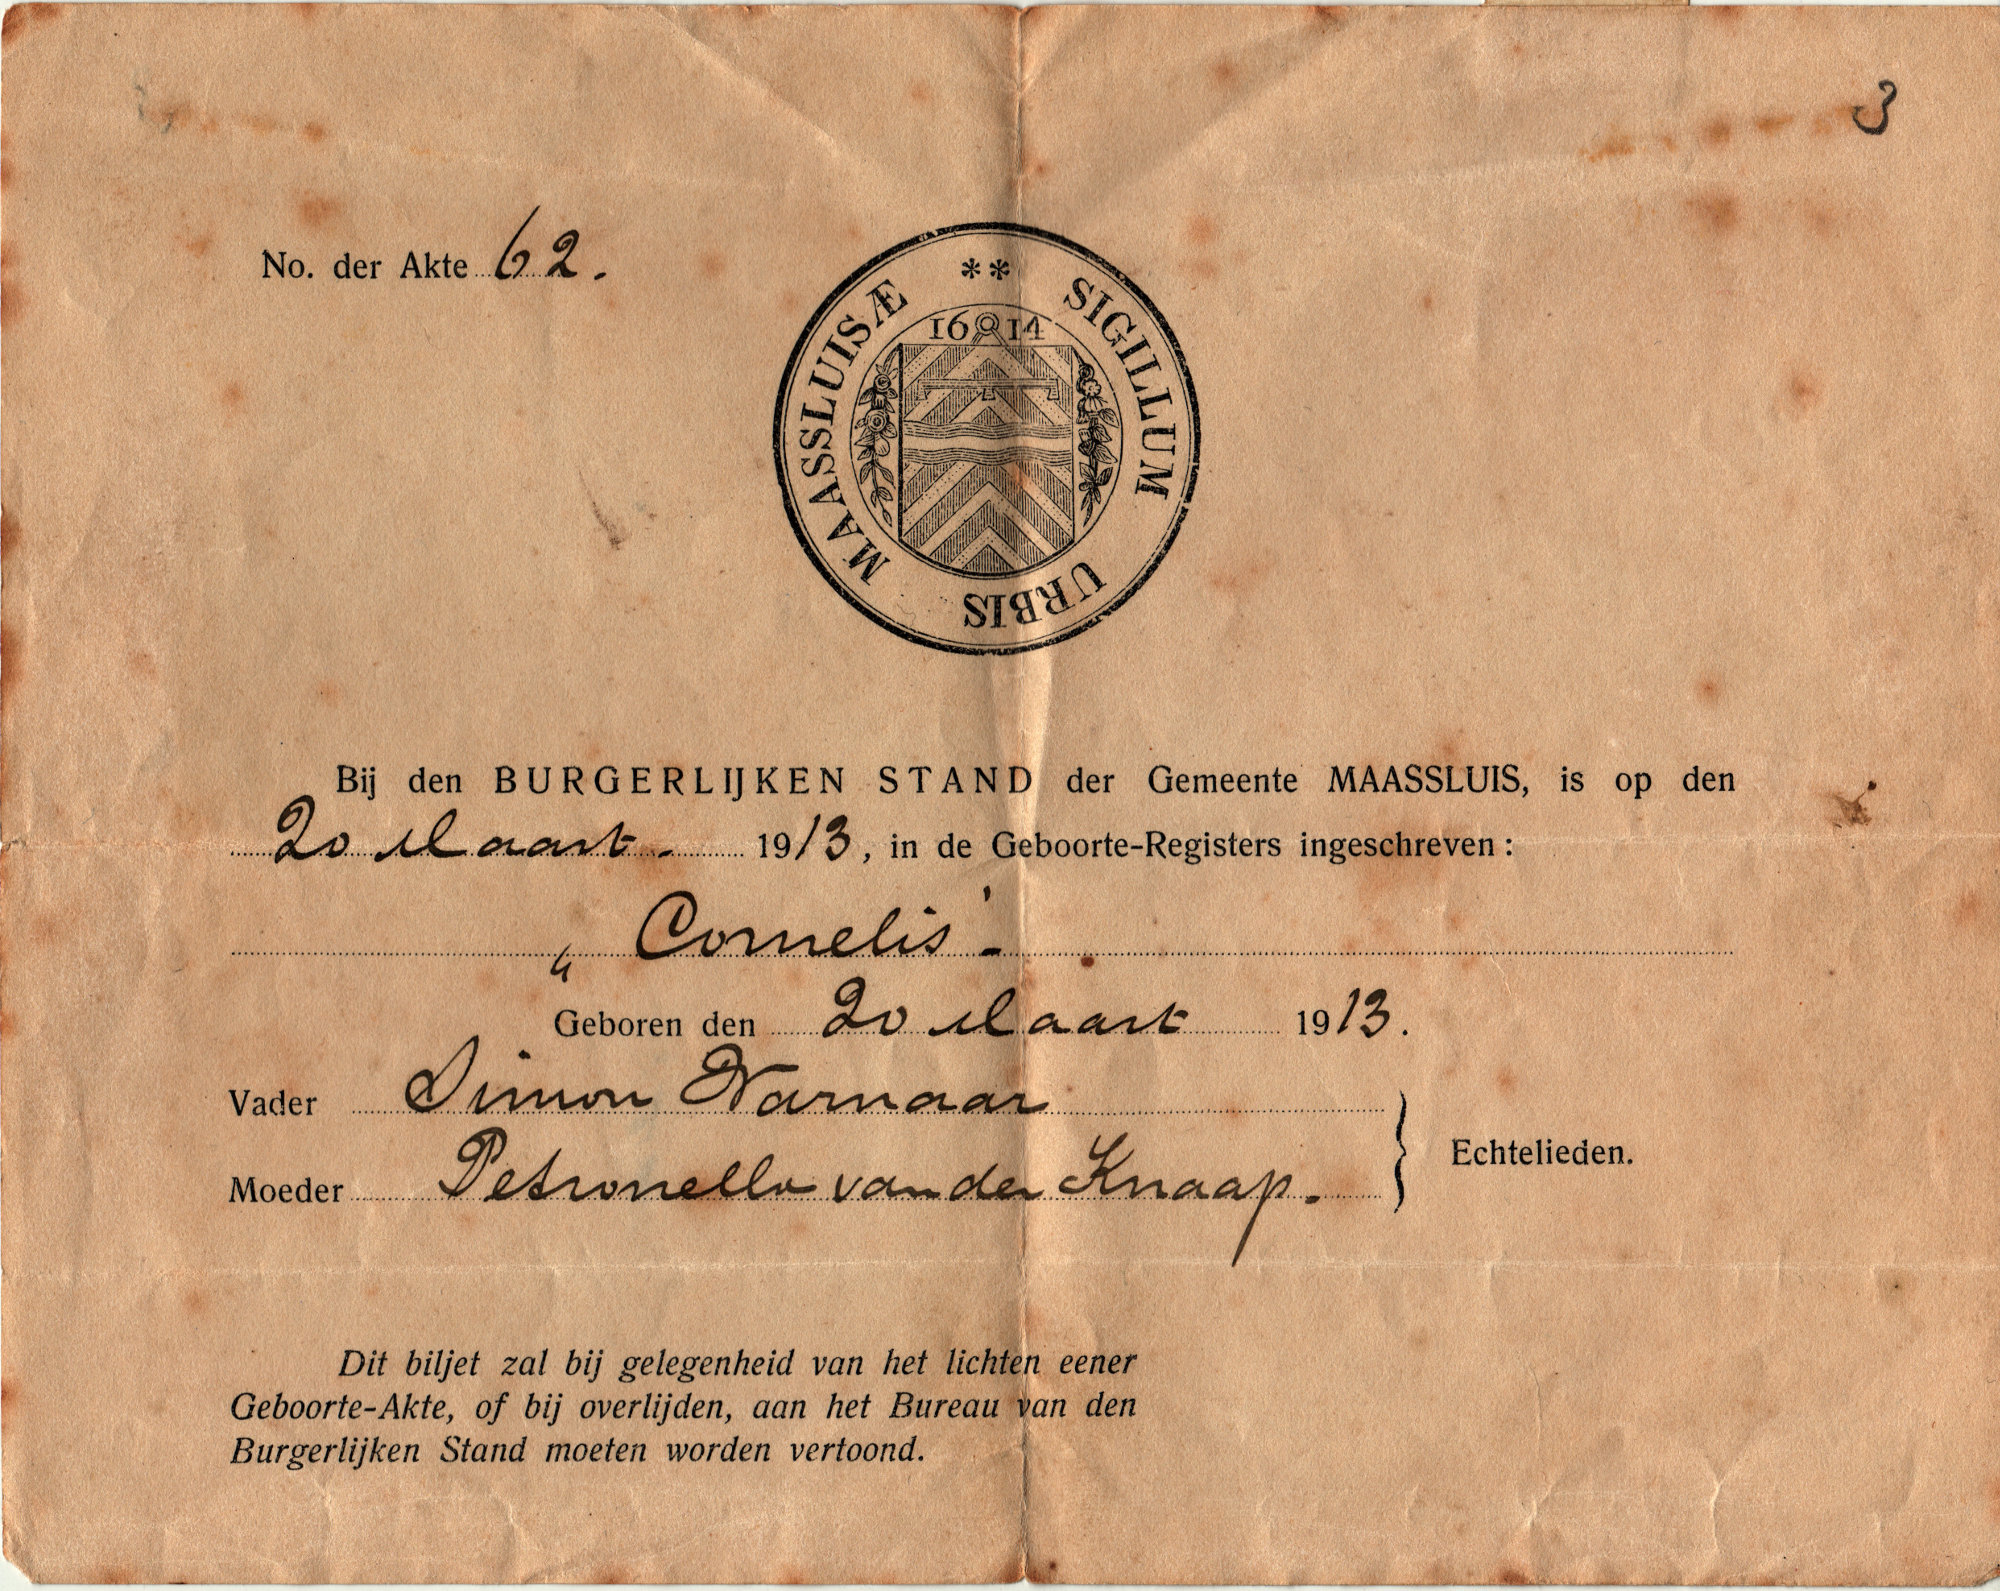 3
No. der Akte 62.
** SIGILLUM URBIS MAASSLUISÆ
16 14
Bij den BURGERLIJKEN STAND der Gemeente MAASSLUIS, is op den
20 Maart. 1913, in de Geboorte-Registers ingeschreven:
„Cornelis'.
Geboren den 20 Maart 1913.
Vader Simon Warnaar
Moeder Petronella van der Knaap.
Echtelieden.
Dit biljet zal bij gelegenheid van het lichten eener
Geboorte-Akte, of bij overlijden, aan het Bureau van den
Burgerlijken Stand moeten worden vertoond.